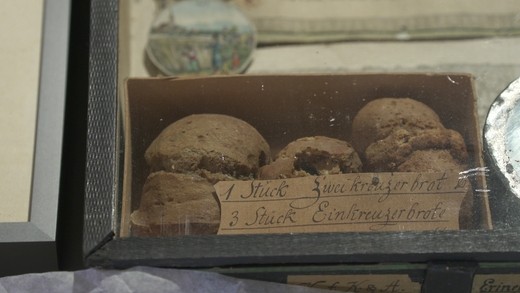 1 Stück Zweikreuzerbrot
3 Stück Einkreuzerbrote